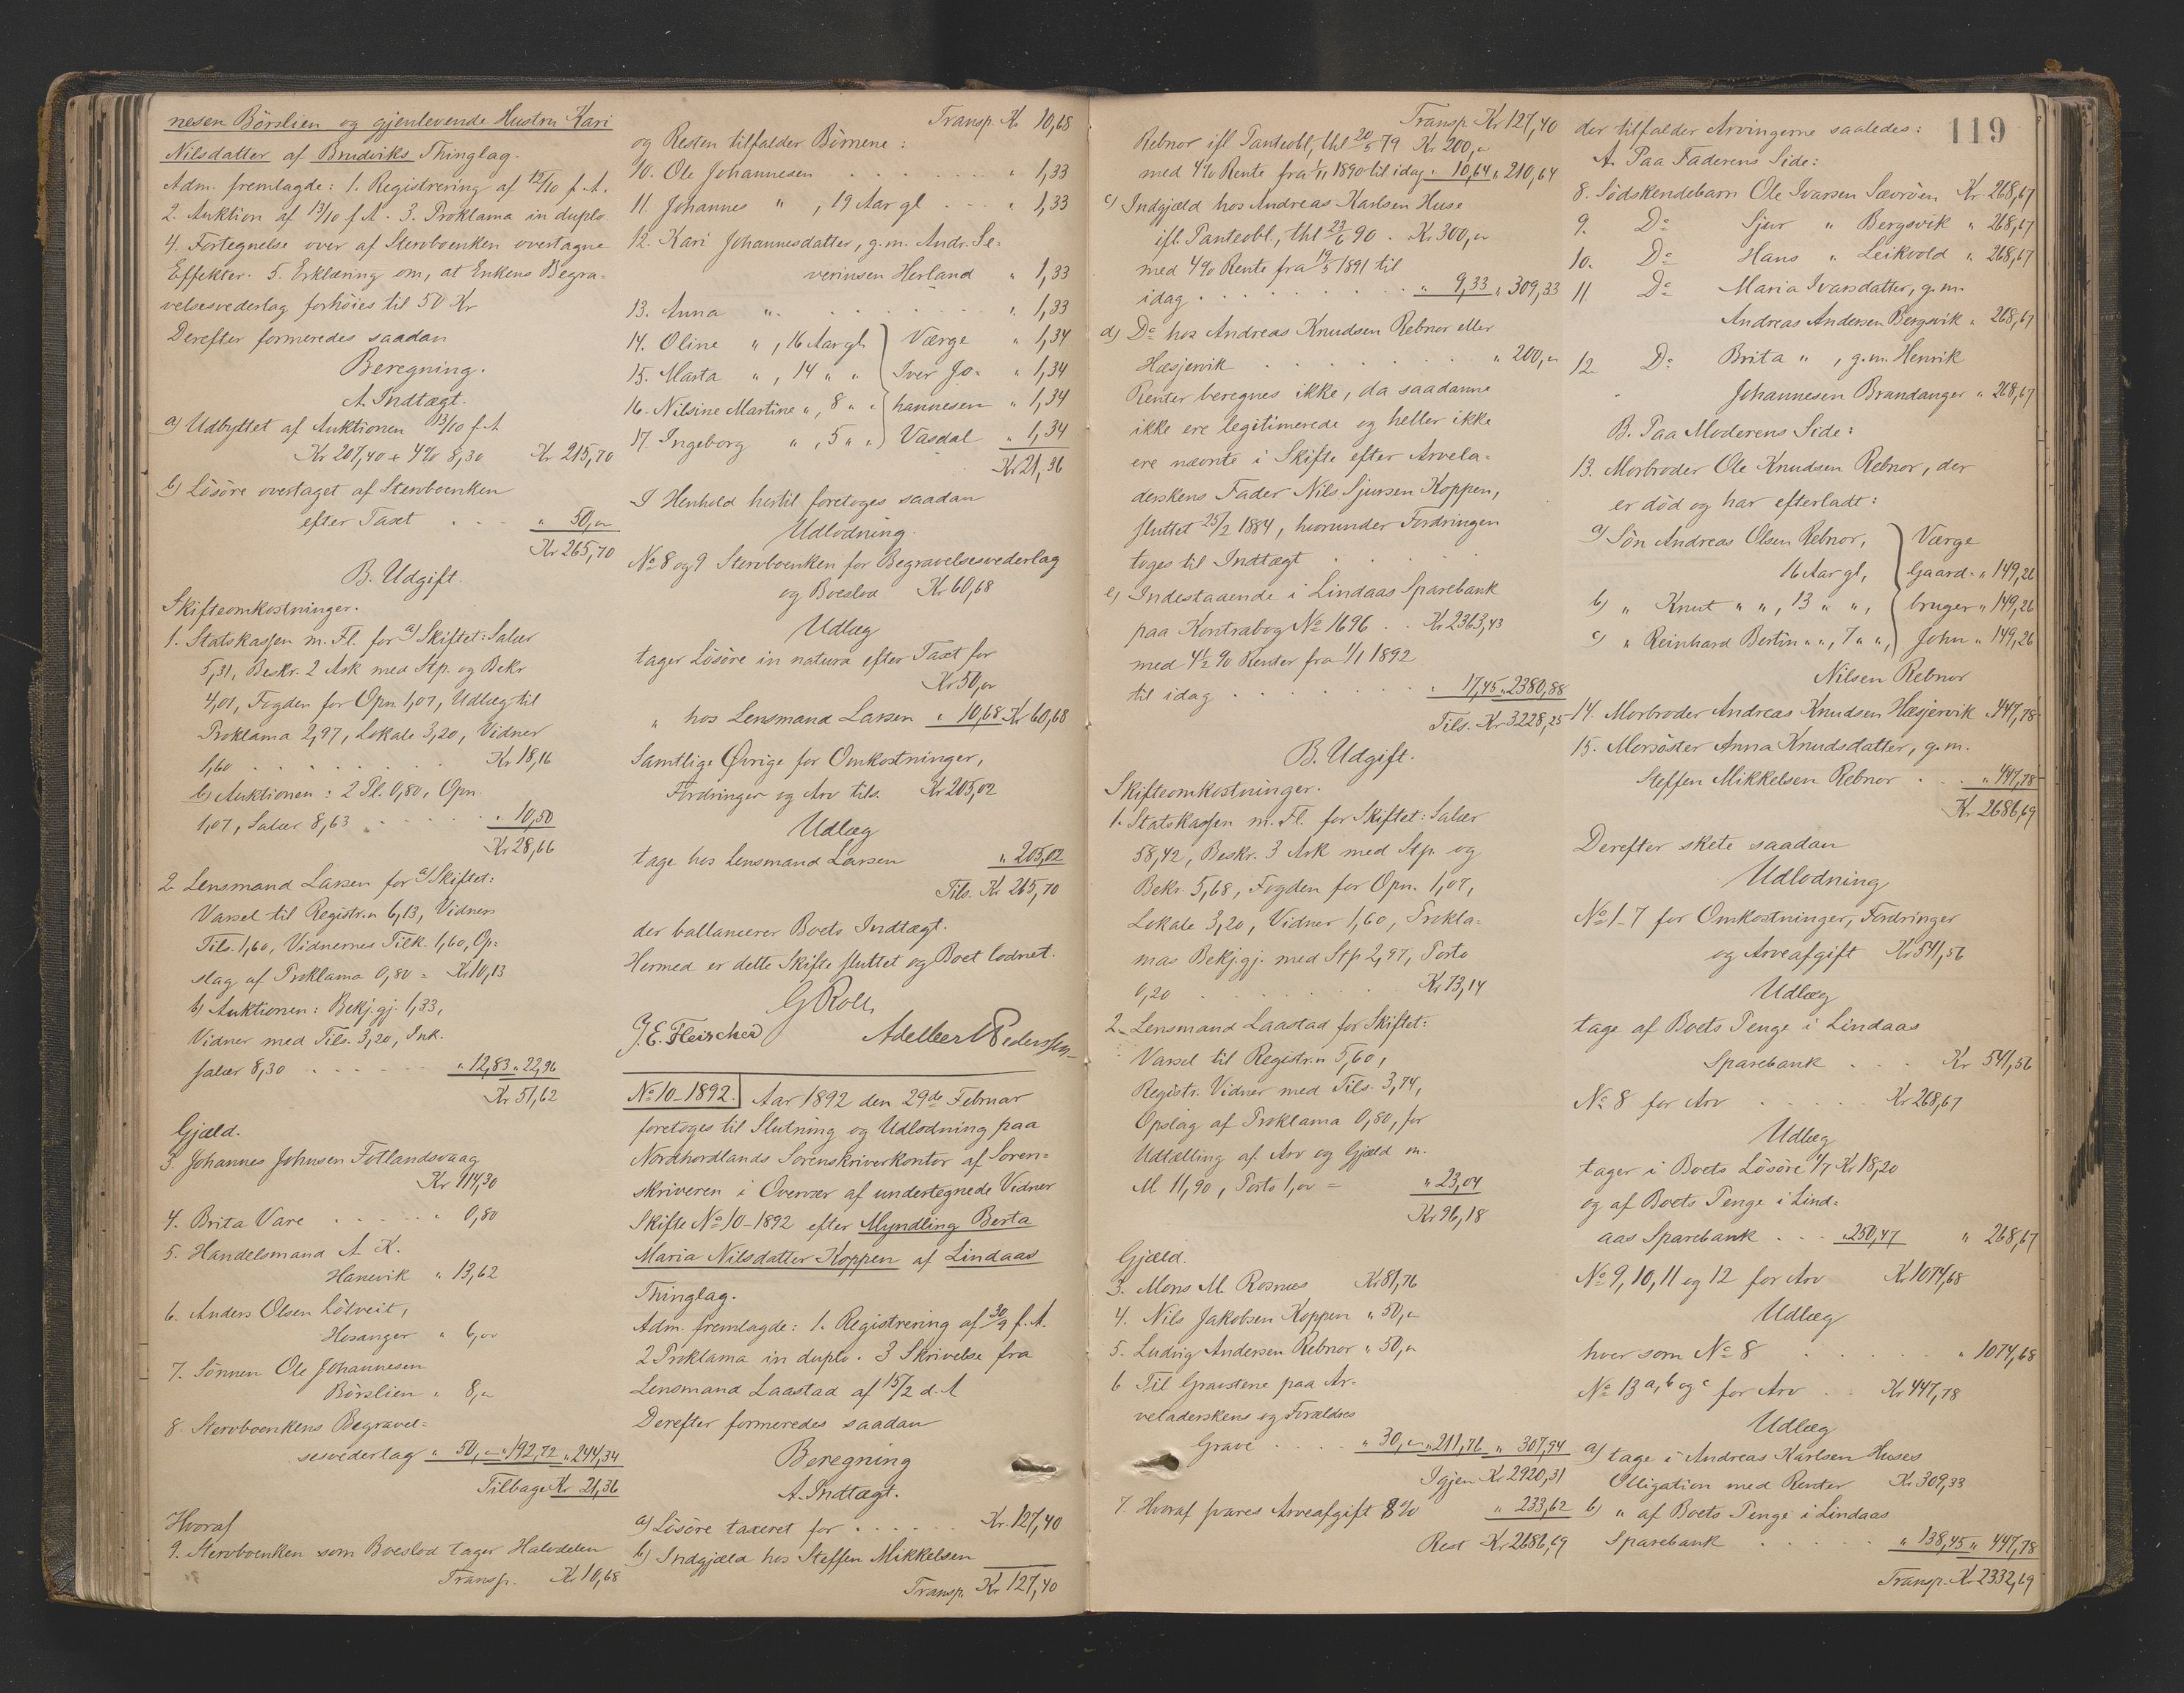 nesen Börslien og gjenlevende Hustru Kari
Nilsdatter af Bruviks Thinglag.
Adm. fremlagde: 1. Registrering af 12/10 f. A.
2. Auktion af 13/10 f. A. 3. Proklama in duplo
4. Fortegnelse over af Stervboenken overtagne
Effekter. 5. Erklæring om, at Enkens Begra-
velsesvederlag forhöies til 50 Kr
Derefter formeredes saadan
Beregning.
A. Indtægt.
a) Udbyttet af Auktionen 13/10 f. A
Kr 207,40 + 4% 8,30 Kr 215,70
b) Lösöre overtaget af Stervboenken
efter Taxt . . . " 50,00
Kr 265,70
B. Udgift.
Skifteomkostninger.
1. Statskassen m. Fl. for a) Skiftet: Salær
5,31, Beskr. 2 Ark med Stp. og Bekr
4,01, Fogden for Opn 1,07, Udlæg til
Proklama 2,97, Lokale 3,20, Vidner
1,60 . . . . . . Kr 18,16
b) Auktionen: 2 Pl. 0,80, Opn.
1,07, Salær 8,63 . . . . " 10,50
Kr 28,66
2. Lensmand Larsen for a) Skiftet:
Varsel til Registr. 6,13, Vidners
Tils. 1,60, Vidnernes Tilk. 1,60, Op-
slag af Proklama 0,80 = Kr 10,13
b) Auktionen: Bekj.gj. 1,33,
Vidner med Tils. 3,20, Ink.
salær 8,30 . . . . " 12,83 " 22,96
Kr 51,62
Gjæld.
3. Johannes Johnsen Fotlandsvaag
Kr 114,30
4. Brita Vare . . . . " 0,80
5. Handelsmand A. K.
Hanevik " 13,62
6. Anders Olsen Lötveit,
Hosanger " 6,00
7. Sönnen Ole Johannesen
Börslien " 8,"
8. Stervboenkens Begravel-
sesvederlag " 50," " 192,72 " 244,34
Tilbage Kr 21,36
Hvoraf
9. Stervboenken som Boeslod tager Halvdelen
Transp. Kr 10,68
Transp. Kr 10,68
og Resten tilfalder Börnene:
10. Ole Johannesen . . . . . . " 1,33
11. Johannes " , 19 Aar gl . . . " 1,33
12. Kari Johannesdatter, g. m. Andr. Se-
verinsen Herland " 1,33
13. Anna " . . . . . . " 1,33
14. Oline " , 16 Aar gl. } Værge " 1,34
15. Marta " , 14 " " } Iver Jo- " 1,34
16. Nilsine Martine " , 8 " " } hannesen " 1,34
17. Ingeborg " , 5 " " } Vasdal " 1,34
Kr 21,36
I Henhold hertil foretoges saadan
Udlodning.
No 8 og 9 Stervboenken for Begravelsesvederlag
og Boeslod Kr 60,68
Udlæg
tager Lösöre in natura efter Taxt for
Kr 50,00
" hos Lensmand Larsen " 10,68 Kr 60,68
Samtlige Øvrige for Omkostninger,
Fordringer og Arv tils. Kr 205,02
Udlæg
tage hos Lensmand Larsen " 205,02
Tils. Kr 265,70
der ballancerer Boets Indtægt.
Hermed er dette Skifte sluttet og Boet lodnet.
G Roll
J. E. Fleischer Adelleer Pederssen
No 10-1892. Aar 1892 den 29de Februar
foretoges til Slutning og Udlodning paa
Nordhordlands Sorenskriverkontor af Soren-
skriveren i Overvær af undertegnede Vidner
Skifte No 10-1892 efter Myndling Berta
Maria Nilsdatter Koppen af Lindaas
Thinglag.
Adm. fremlagde: 1. Registrering af 30/9 f. A.
2 Proklama in duplo. 3 Skrivelse fra
Lensmand Laastad af 15/2 d. A
Derefter formeredes saadan
Beregning
A. Indtægt.
a) Lösöre taxeret for . . . . . . Kr. 127,40
b) Indgjæld hos Steffen Mikkelsen
Transp. Kr 127,40
119
Transp. Kr 127,40
Rebnor ifl. Panteobl., thl 20/5 79 Kr 200,"
med 4% Rente fra 1/11 1890 til idag " 10,64 " 210,64
c) Indgjæld hos Andreas Karlsen Huse
ifl. Panteobl., thl 23/6 90 . Kr 300,"
med 4% Rente fra 19/5 1891 til
idag . . . . . . . . " 9,33 " 309,33
d) Do hos Andreas Knudsen Rebnor eller
Hæsjervik . . . . . . . . " 200,"
Renter beregnes ikke, da saadanne
ikke ere legitimerede og heller ikke
ere nævnte i Skifte efter Arvela-
derskens Fader Nils Sjursen Koppen,
sluttet 25/2 1884, hvorunder Fordringen
toges til Indtægt . . . .
e) Indestaaende i Lindaas Sparebank
paa Kontrabog No 1696 . . Kr 2363,43
med 4½ % Renter fra 1/1 1892
til idag . . . . . . . " 17,45 " 2380,88
Tils. Kr 3228,25
B. Udgift.
Skifteomkostninger.
1. Statskassen m. Fl. for Skiftet: Salær
58,42, Beskr. 3 Ark med Stp. og
Bekr. 5,68, Fogden for Opn. 1,07,
Lokale 3,20, Vidner 1,60, Prokla-
mas Bekj.gj. med Stp 2,97, Porto
0,20 . . . . . . Kr 73,14
2. Lensmand Laastad for Skiftet:
Varsel til Registr. 5,60,
Registr. Vidner med Tils. 3,74,
Opslag af Proklama 0,80, for
Udtælling af Arv og Gjæld m.
M 11,90, Porto 1,00 = " 23,04
Kr 96,18
Gjæld.
3. Mons M. Rosnæs Kr 81,76
4. Nils Jakobsen Koppen " 50,"
5. Ludvig Andersen Rebnor " 50,"
6 Til Gravstene paa Ar-
veladerskens og Forældres
Grave . . . . " 30," " 211,76 " 307,94
Igjen Kr 2920,31
7. Hvoraf svares Arveafgift 8% " 233,62
Rest Kr 2686,69
der tilfalder Arvingerne saaledes:
A. Paa Faderens Side:
8. Södskendebarn Ole Ivarsen Sævröen Kr. 268,67
9. Do Sjur " Bergsvik " 268,67
10. Do Hans " Leikvold " 268,67
11 Do Maria Ivarsdatter, g. m.
Andreas Andersen Bergsvik " 268,67
12. Do Brita " , g. m. Henrik
Johannesen Brandanger " 268,67
B. Paa Moderens Side:
13. Morbroder Ole Knudsen Rebnor, der
er död og har efterladt:
a) Sön Andreas Olsen Rebnor, } Værge
16 Aar gl, } Gaard- " 149,26
b) " Knut " " , 13 " " , } bruger " 149,26
c) " Reinhard Bertin " " , 7 " " , } John " 149,26
Nilsen Rebnor
14. Morbroder Andreas Knudsen Hæsjervik " 447,78
15. Morsöster Anna Knudsdatter, g. m.
Steffen Mikkelsen Rebnor . . . " 447,78
Kr 2686,69
Derefter skete saadan
Udlodning
No 1-7 for Omkostninger, Fordringer
og Arveafgift Kr 541,56
Udlæg
tage af Boets Penge i Lindaas
Sparebank . . . Kr 541,56
No 8 for Arv . . . . . Kr 268,67
Udlæg
tager i Boets Lösöre 1/7 Kr 18,20
og af Boets Penge i Lind-
aas Sparebank . . . " 250,47 " 268,67
No 9, 10, 11 og 12 for Arv Kr 1074,68
Udlæg
hver som No 8 . . . . . . " 1074,68
No 13 a, b og c for Arv . . Kr 447,78
Udlæg
a) tage i Andreas Karlsen Huses
Obligation med Renter Kr 309,33
b) " af Boets Penge i Lindaas
Sparebank . . . . . " 138,45 " 447,78
Transp. Kr 2332,69